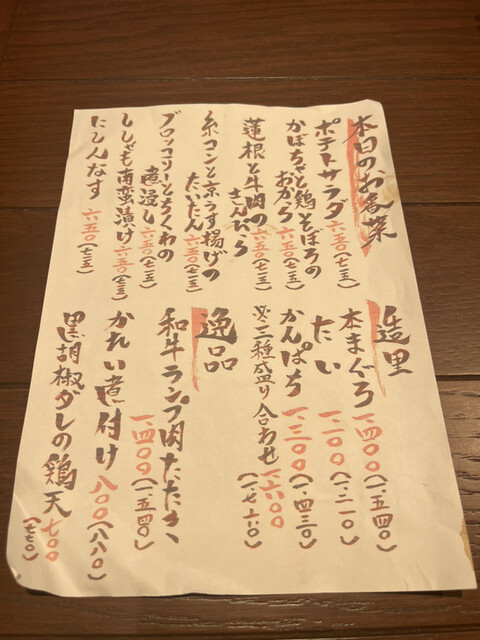 本日のお番菜
ポテトサラダ 六五〇(七一五)
かぼちゃと鶏そぼろの
おから 六五〇(七一五)
蓮根と牛肉の
きんぴら 六五〇(七一五)
糸コンと京うす揚げの
たいたん 六五〇(七一五)
ブロッコリーとちくわの
煮浸し 六五〇(七一五)
ししゃも南蛮漬け 六五〇(七一五)
にしんなす 六五〇(七一五)
造里
本まぐろ 一、四〇〇(一、五四〇)
たい 一、一〇〇(一、二一〇)
かんぱち 一、三〇〇(一、四三〇)
※二種盛り合わせ 一、六〇〇(一、七六〇)
逸品
和牛ランプ肉たたき
一、四〇〇(一、五四〇)
かれい煮付け 八〇〇(八八〇)
黒胡椒ダレの鶏天 七〇〇
(七七〇)